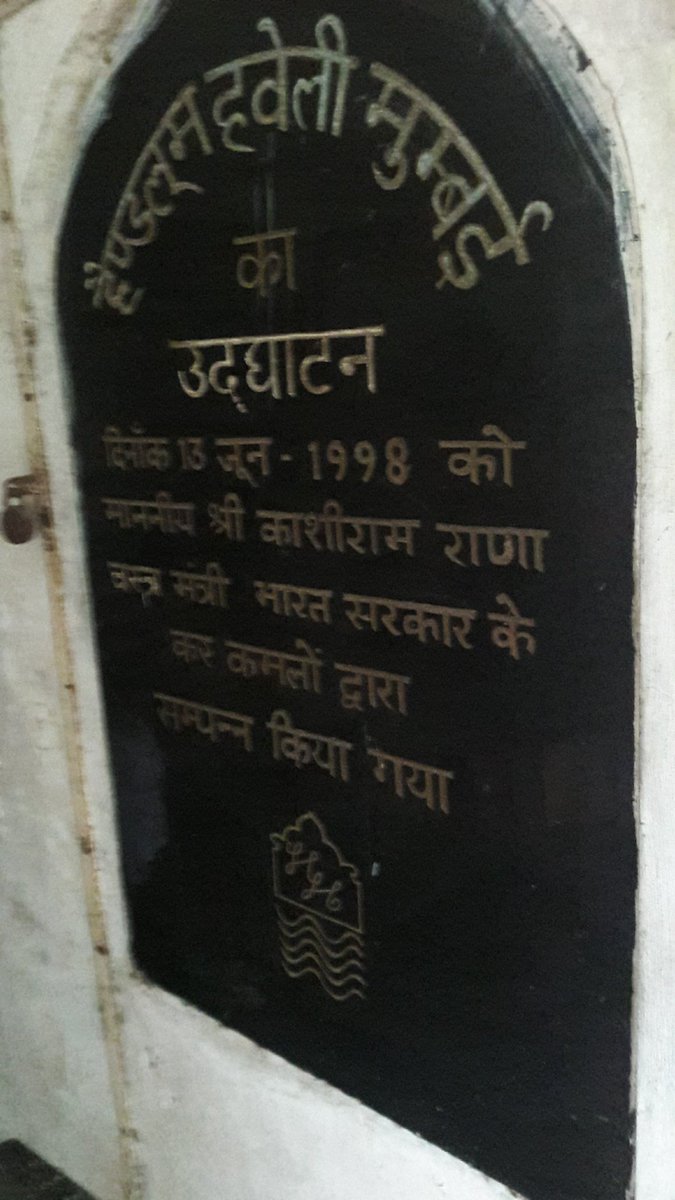 हैण्डलूम हवेली मुम्बई
का
उद्‌घाटन
दिनाँक 13 जून - 1998 को
माननीय श्री काशीराम राणा
वस्त्र मंत्री भारत सरकार के
कर कमलों द्वारा
सम्पन्न किया गया